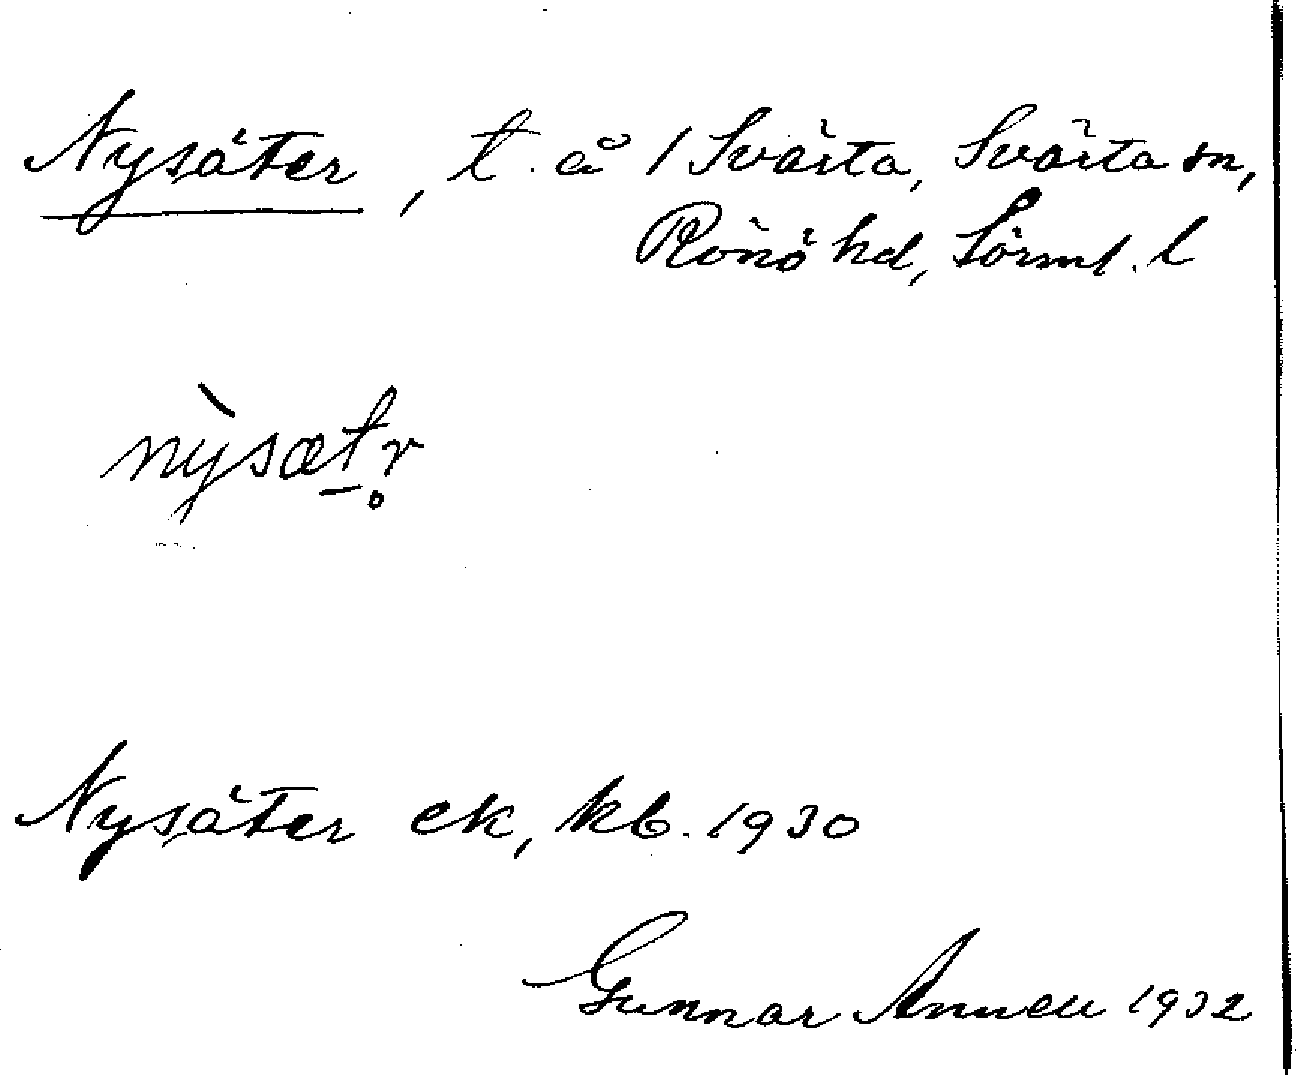 Nysäter, t. å 1 Svärta, Svärta sn,
Rönö hd, Sörml. l
nỳsæt̲r̥
Nysäter ek, kb. 1930
Gunnar 1932